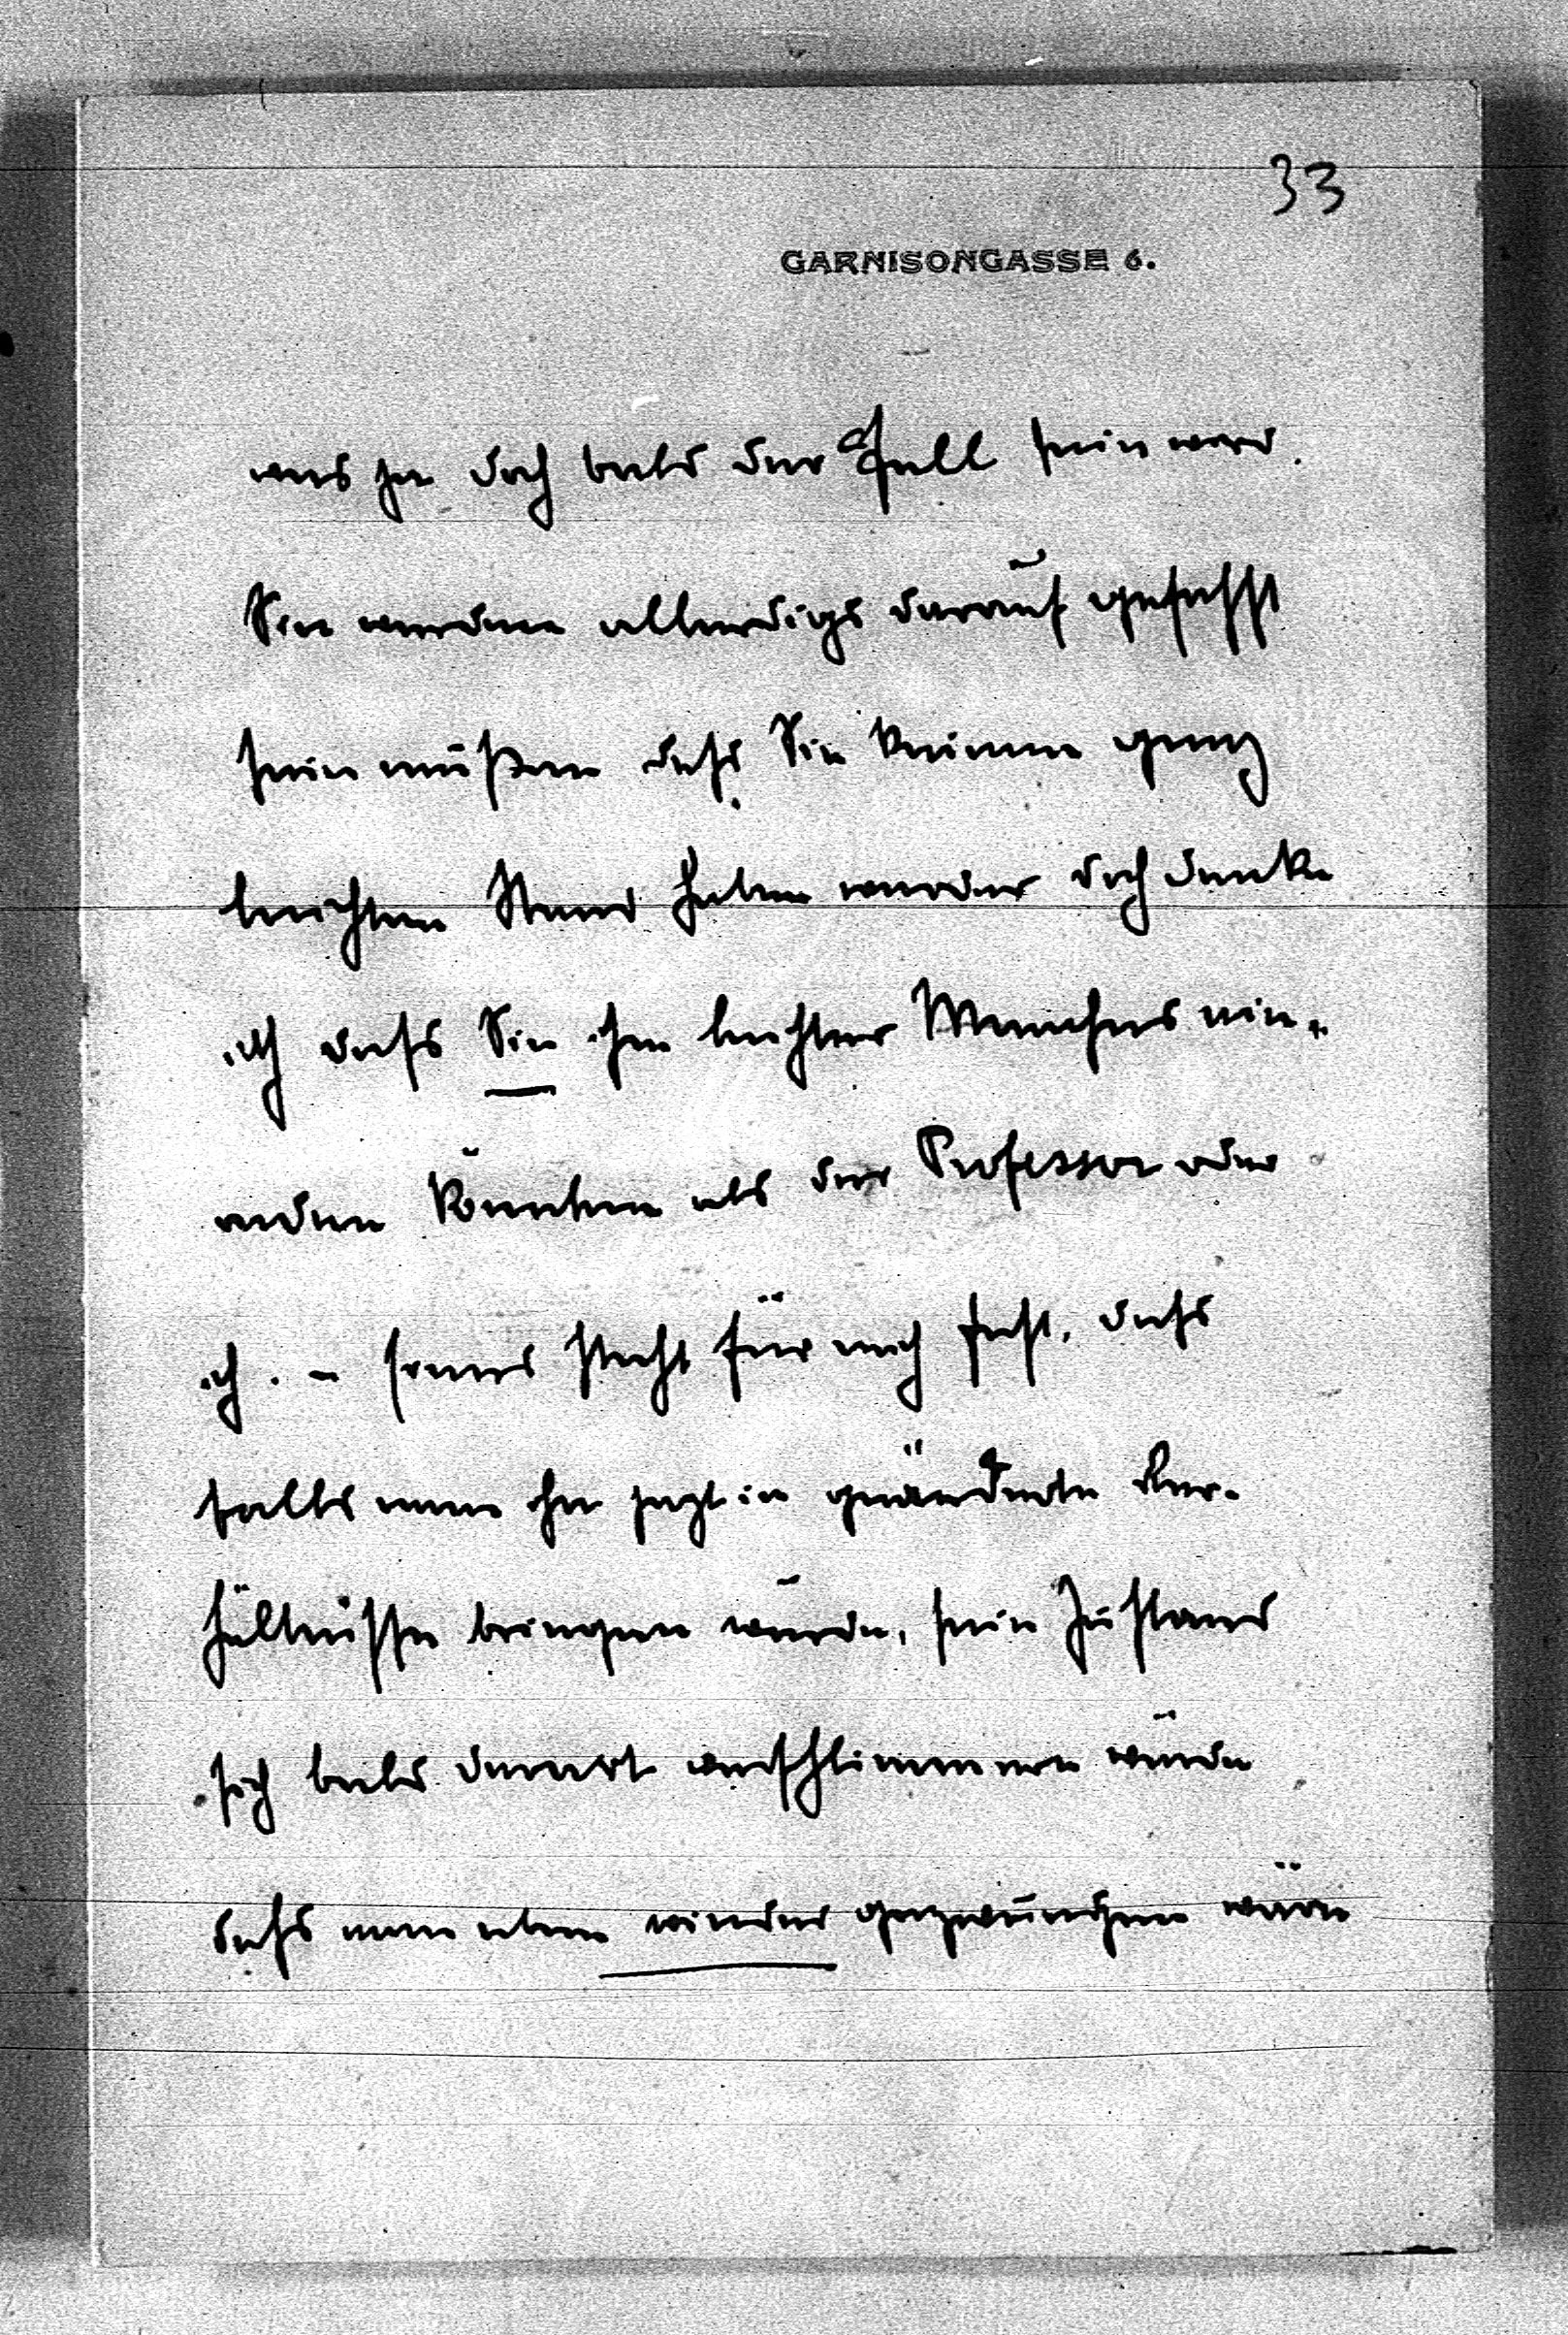 33
GARNISONGASSE 6.
was ja doch bald der Fall sein wird.
Sie werden allerdigs darauf gefasst
sein müßen dass Sie keinen ganz
leichten Stand haben werden doch denke
ich dass Sie ihm leichter Manches ein-
reden könnten als der Professor oder
ich. – ferner steht für mich fest, dass
falls man ihn jezt in geänderte Ver-
hältnisse bringen würde, sein Zustand
sich bald derart verschlimmern würde
dass man eben wieder gezwungen wäre